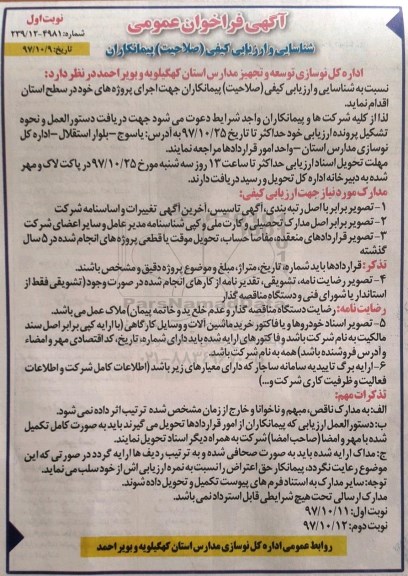 آگهی فراخوان عمومی
نوبت اول
شماره: ۲۳۹/۱۲۰۴۹۸۱
تاریخ: ۹۷/۱۰/۹
شناسایی و ارزیابی کیفی (صلاحیت) پیمانکاران
اداره کل نوسازی توسعه و تجهیز مدارس استان کهگیلویه و بویر احمد در نظر دارد:
نسبت به شناسایی و ارزیابی کیفی (صلاحیت) پیمانکاران جهت اجرای پروژه های خود در سطح استان
اقدام نماید.
لذا از کلیه شرکت ها و پیمانکاران واجد شرایط دعوت می شود جهت دریافت دستورالعمل و نحوه
تشکیل پرونده ارزیابی خود حداکثر تا تاریخ ۹۷/۱۰/۲۵ به آدرس: یاسوج -بلوار استقلال -اداره کل
نوسازی مدارس استان -واحد امور قراردادها مراجعه نمایند.
مهلت تحویل اسناد ارزیابی حداکثر تا ساعت ۱۳ روز سه شنبه مورخ ۹۷/۱۰/۲۵ در پاکت لاک و مهر
شده به دبیرخانه اداره کل تحویل و رسید دریافت دارند.
مدارک مورد نیاز جهت ارزیابی کیفی:
۱- تصویر برابر با اصل رتبه بندی، آگهی تاسیس، آخرین آگهی تغییرات و اساسنامه شرکت
۲- تصویر برابر اصل مدارک تحصیلی و کارت ملی و کپی شناسنامه مدیر عامل و سایر اعضای شرکت
۳- تصویر قراردادهای منعقده، مفاصا حساب، تحویل موقت یا قطعی پروژه های انجام شده در ۵ سال
گذشته
تذکر: قراردادها باید شماره، تاریخ، متراژ، مبلغ و موضوع پروژه دقیق و مشخص باشند.
۴- تصویر رضایت نامه، تشویقی، تقدیر نامه از کارهای انجام شده در صورت وجود (تشویقی فقط از
استاندار یا شورای فنی و دستگاه مناقصه گذار
رضایت نامه: رضایت دستگاه مناقصه گذار و عدم خلع ید و خاتمه پیمان) ملاک عمل می باشد.
۵- تصویر اسناد خودروها و یا فاکتور خرید ماشین آلات و وسایل کارگاهی (با ارایه کپی برابر اصل سند
مالکیت به نام شرکت باشد و فاکتورهای ارایه شده باید دارای شماره، تاریخ، کد اقتصادی مهر و امضاء
و آدرس فروشنده باشد) همه به نام شرکت باشد.
۶- ارایه برگ تاییدیه سامانه ساجار که دارای معیارهای زیر باشد (اطلاعات کامل شرکت و اطلاعات
فعالیت و ظرفیت کاری شرکت و...)
تذکرات مهم:
الف: به مدارک ناقص، مبهم و ناخوانا و خارج از زمان مشخص شده ترتیب اثر داده نمی شود.
ب: دستورالعمل ارزیابی که پیمانکاران از امور قراردادها تحویل می گیرند باید به صورت کامل تکمیل
شده با مهر و امضا (صاحب امضا) شرکت به همراه دیگر اسناد تحویل نمایند.
ج: مدارک ارایه شده باید به صورت صحافی شده و به ترتیب ردیف ها ارایه گردد در صورتی که این
موضوع رعایت نگردد، پیمانکار حق اعتراض را نسبت به نمره ارزیابی اش از خود سلب می نماید.
توجه: سایر مدارک به استناد فرم های پیوست تکمیل و تحویل داده شوند.
مدارک ارسالی تحت هیچ شرایطی قابل استرداد نمی باشد.
نوبت اول: ۹۷/۱۰/۱۱
نوبت دوم: ۹۷/۱۰/۱۲
روابط عمومی اداره کل نوسازی مدارس استان کهگیلویه و بویر احمد